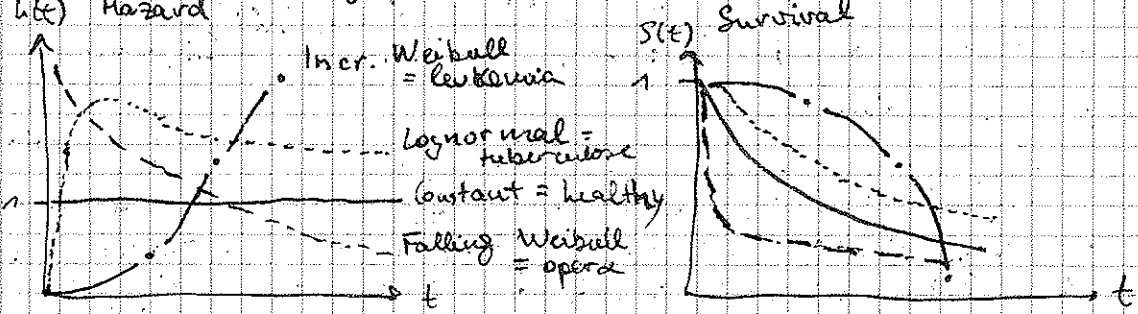 h(t) Hazard
Incr. Weibull
= leukemia
Lognormal =
tuberculose
1
Constant = healthy
Falling Weibull
= opera
t
S(t) Survival
1
t